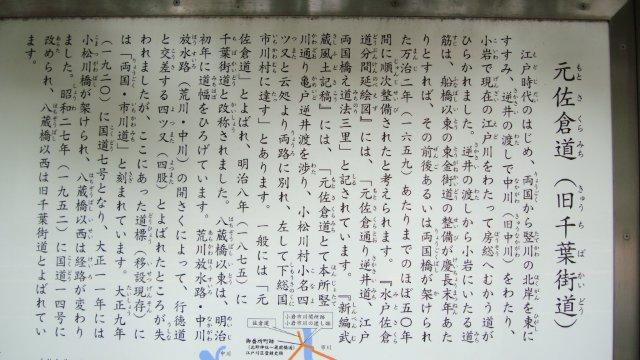 元佐倉道（旧千葉街道）
江戸時代のはじめ、両国から竪川の北岸を東に
すすみ、逆井の渡しで中川（旧中川）をわたり、
小岩で現在の江戸川をわたって房総へむかう道が
ひらかれました。逆井の渡しから小岩にいたる道
筋は、船橋以東の東金街道の整備が慶長末年あた
りとすれば、その前後あるいは両国橋が架けられ
た万治二年（一六五九）あたりまでのほぼ五〇年
間に順次整備されたと考えられます。『水戸佐倉
道分間延絵図』には、「元佐倉道、逆井道、江戸
両国橋え道法三里」と記されています。『新編武
蔵風土記稿』には、「元佐倉道とて本所竪
川通り亀戸逆井渡を渉り、小松川村小名四
ツ又と云処より両路に別れ、左して下総国
市川村に達す」とあります。一般には「元
佐倉道」とよばれ、明治八年（一八七五）に
千葉街道と改称されました。八蔵橋以東は、明治
初年に道幅をひろげています。荒川放水路・中川
放水路（荒川・中川）の開さくによって、行徳道
と交差する四ツ又（四股）とよばれたところが失
われましたが、ここにあった道標（移設現存）に
は「両国・市川道」と刻まれています。大正九年
（一九二〇）に国道七号となり、大正一一年には
小松川橋が架けられ、八蔵橋以西は経路が変わり
ました。昭和二七年（一九五二）に国道一四号に
改められ、八蔵橋以西は旧千葉街道とよばれてい
ます。
佐倉道
小岩市川関所跡
小岩市川の渡し跡
御番所町跡
江戸川区登録史跡
市川
中川